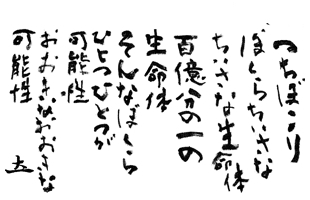 つちぼこり
ぼくらちいさな
ちいさな生命体
百億分の一の
生命体
そんなぼくら
ひとつひとつが
可能性
おおきなおおきな
可能性